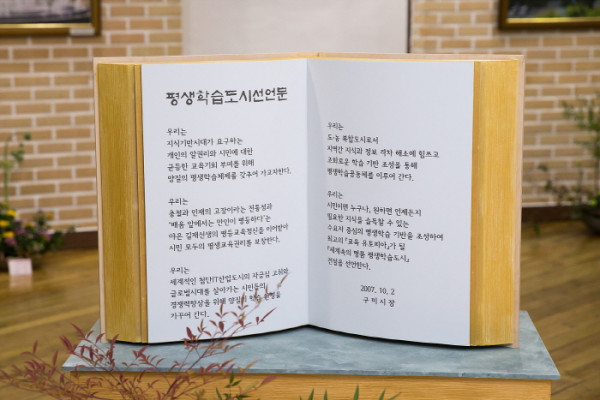 평생학습도시선언문
우리는
지식기반시대가 요구하는
개인의 알권리와 시민에 대한
균등한 교육기회 부여를 위해
양질의 평생학습체제를 갖추어 가고자한다.
우리는
충절과 인재의 고장이라는 전통성과
「배움 앞에서는 만인이 평등하다」는
야은 길재선생의 평등교육정신을 이어받아
시민 모두의 평생교육권리를 보장한다.
우리는
세계적인 첨단IT산업도시의 자긍심 고취와
글로벌시대를 살아가는 시민들의
경쟁력향상을 위해 양질의 학습
가꾸어 간다.
우리는
도·농 복합도시로서
지역간 지식과 정보 격차 해소에 힘쓰고
조화로운 학습 기반 조성을 통해
평생학습공동체를 이루어 간다.
우리는
시민이면 누구나, 원하면 언제든지
필요한 지식을 습득할 수 있는
수요자 중심의 평생학습 기반을 조성하여
최고의 『교육 유토피아』가 될
『세계속의 명품 평생학습도시』
건설을 선언한다.
2007. 10. 2
구미시장